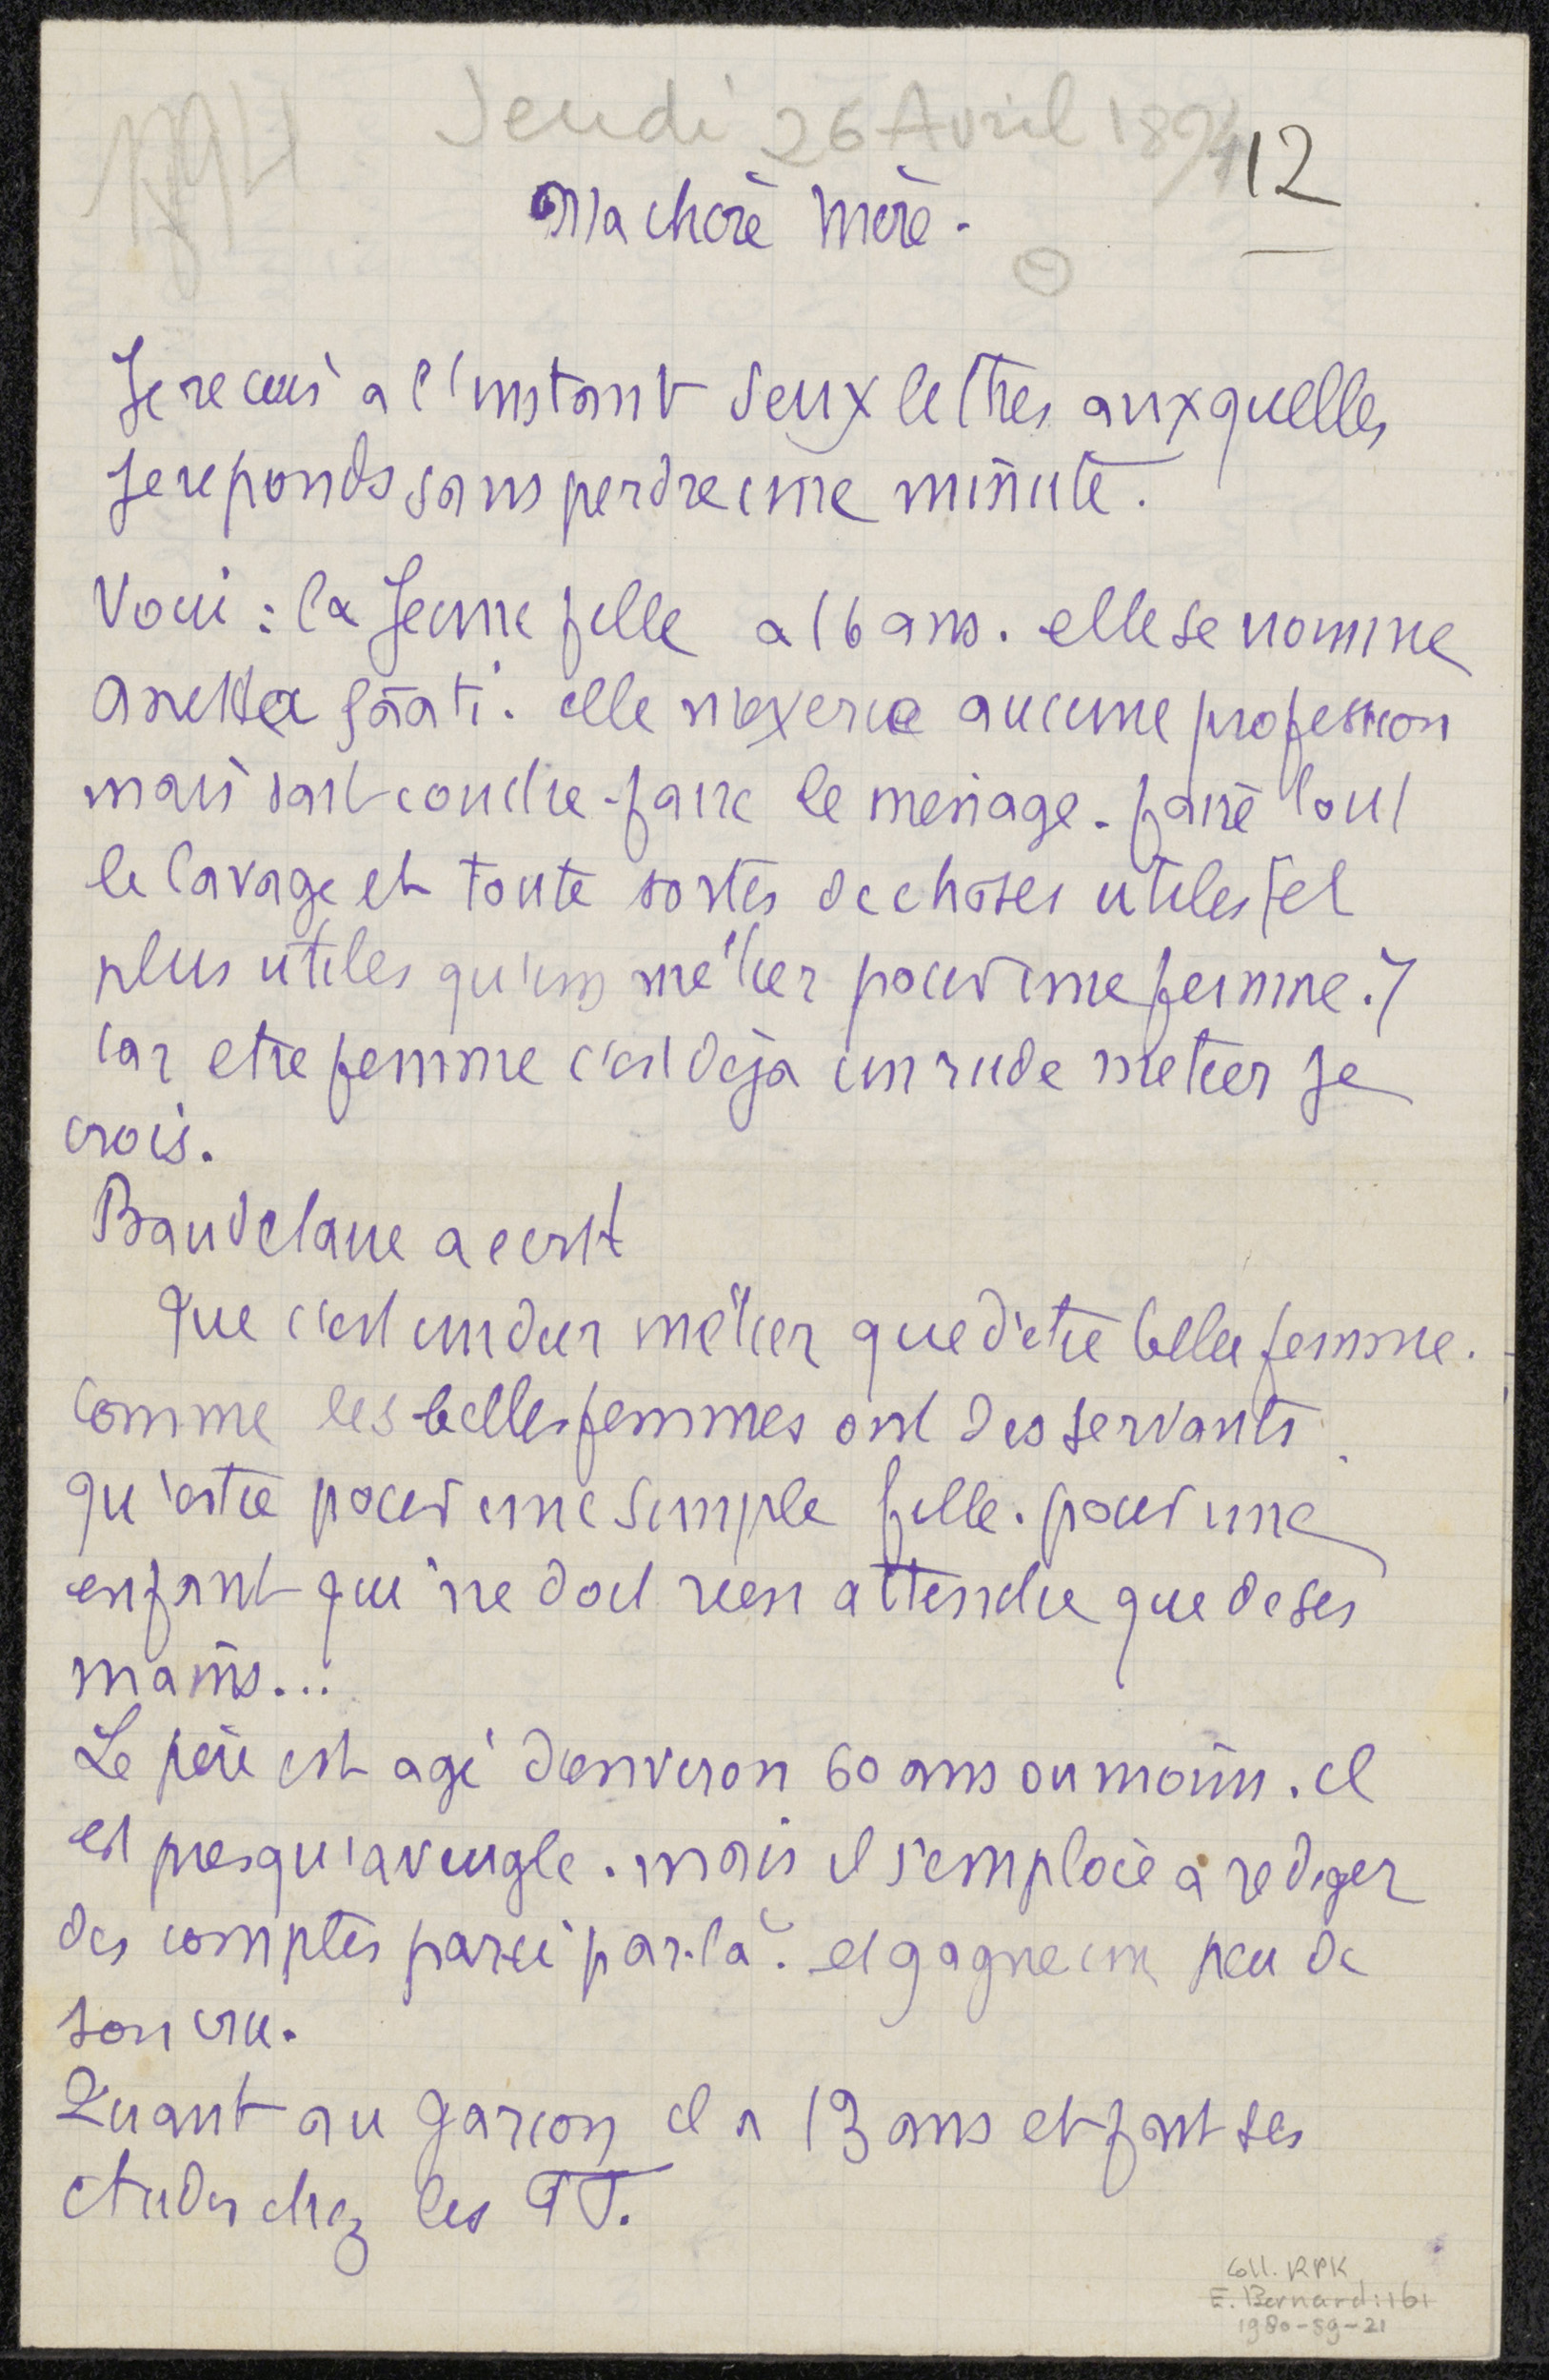 1894
Jeudi 26 Avril 1894
12
Ma chère mère.
Je recois à l'instant deux lettres auxquelles
Je reponds sans perdre une minute.
Voici : la Jeune fille a 16 ans. elle se nomme
Anetta Saati. elle n'exerce aucune profession
mais sait coudre - faire le menage. faire tout
le lavage et toute sortes de choses utiles (et
plus utiles qu'un métier pour une femme.)
car etre femme c'est déja un rude metier Je
crois.
Baudelaire a ecrit
Que c'est un dur métier que d'etre belle femme.
Comme les belles femmes ont des servants
qu'estce pour une simple fille. pour une
enfant qui ne doit rien attendre que de ses
mains...
Le père est agé d'environ 60 ans ou moins. il
est presqu'aveugle. mais il s'emploie a rediger
des comptes par-ci par-là. et gagne un peu de
son cru.
Quant au garcon il a 13 ans et fait ses
etudes chez les
Coll. RPK
E. Bernard: 161
1980-59-21